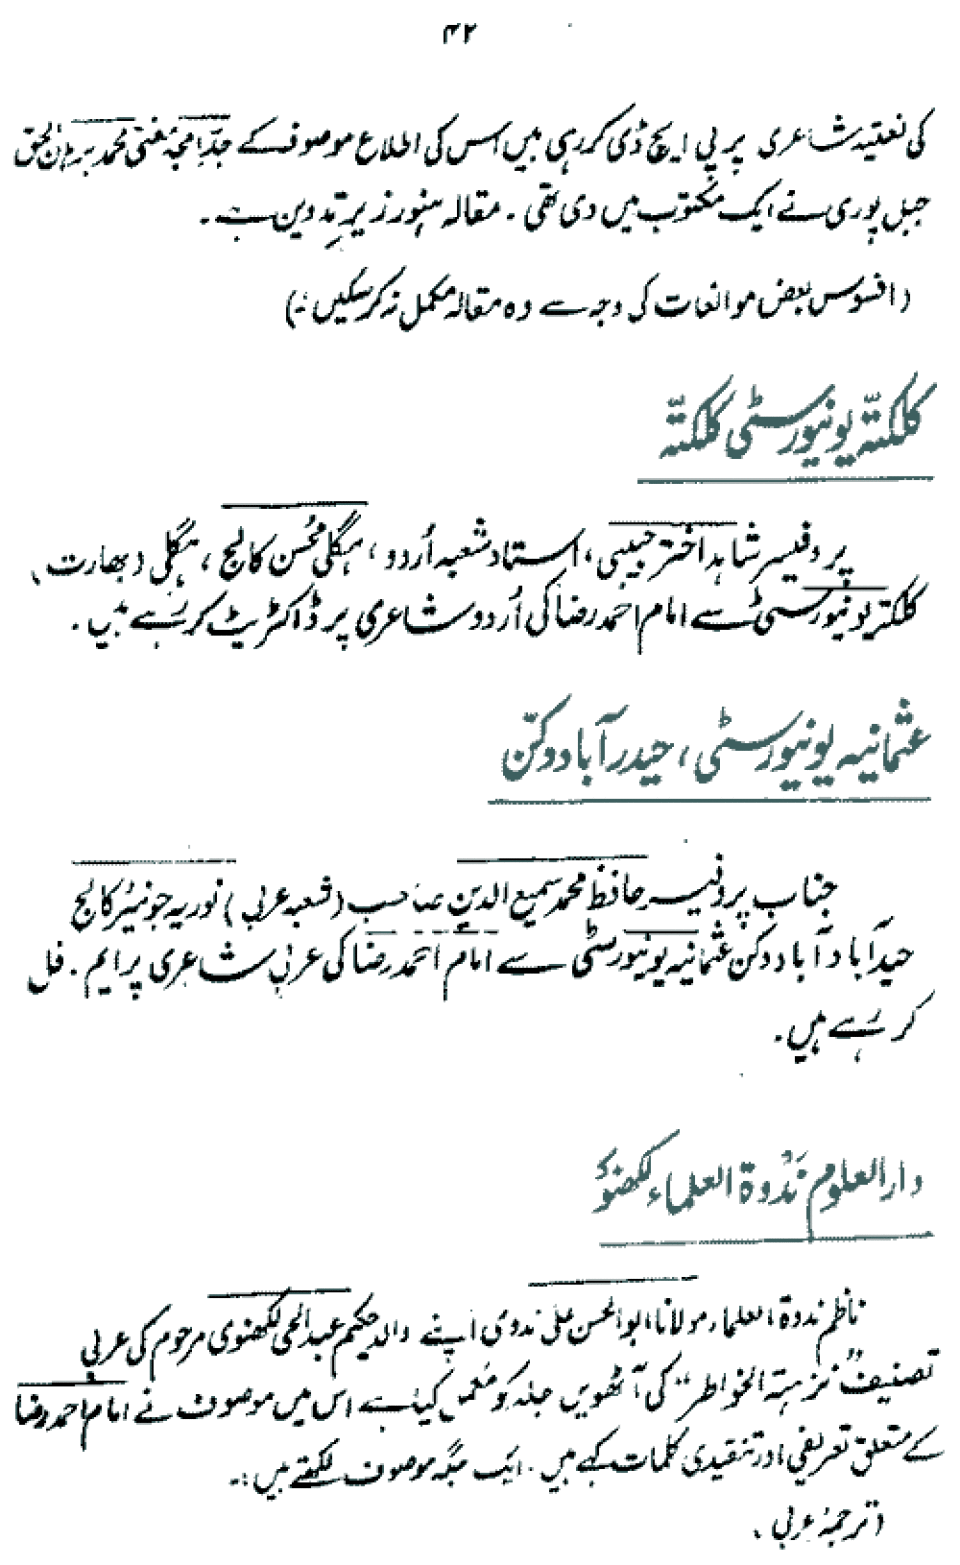 ۴۲
کی نعتیہ شاعری پر پی ایچ ڈی کر رہی ہیں اس کی اطلاع موصوف کے جدِّ امجد مفتی محمد برہان الحق
جبل پوری نے ایک مکتوب میں دی تھی ۔ مقالہ ہنوز زیرِ تدوین ہے ۔
(افسوس بعض موانعات کی وجہ سے وہ مقالہ مکمل نہ کر سکیں ؛۔)
کلکتّہ یونیورسٹی کلکتّہ
پروفیسر شاہد اختر حبیبی ، استاد شعبہ اُردو ، ہگلی محسن کالج ، ہگلی (بھارت)
کلکتہ یونیورسٹی سے امام احمد رضا کی اُردو شاعری پر ڈاکٹریٹ کر رہے ہیں ۔
عثمانیہ یونیورسٹی ، حیدر آباد دکّن
جناب پروفیسر حافظ محمد سمیع الدین صاحب (شعبہ عربی) نوریہ جونیئر کالج
حیدآباد آباد دکن عثمانیہ یونیورسٹی سے امام احمد رضا کی عربی شاعری پر ایم . فل
کر رہے ہیں ۔
دارالعلوم ندوۃ العلماء لکھنؤ
ناظم ندوۃ العلماء مولانا ابوالحسن علی ندوی اپنے والد حکیم عبدالحی لکھنوی مرحوم کی عربی
تصنیف "نزہتہ الخواطر" کی آٹھویں جلد کو مکمل کیا ہے اس میں موصوف نے امام احمد رضا
کے متعلق تعریفی اور تنقیدی کلمات کہے ہیں ۔ ایک جگہ موصوف لکھتے ہیں :۔
(ترجمۂ عربی)